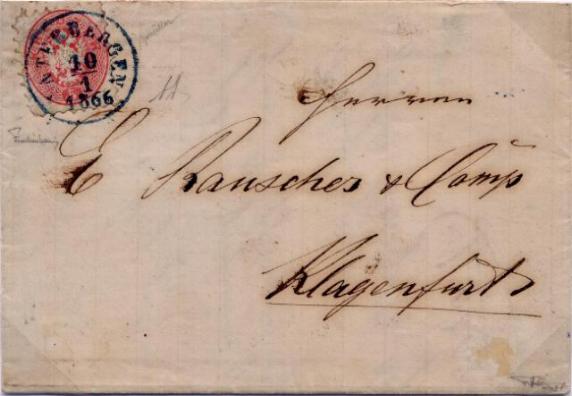 ATTERBERGEN
10
1
1866
Herren
E Rauscher & Comp
Klagenfurt